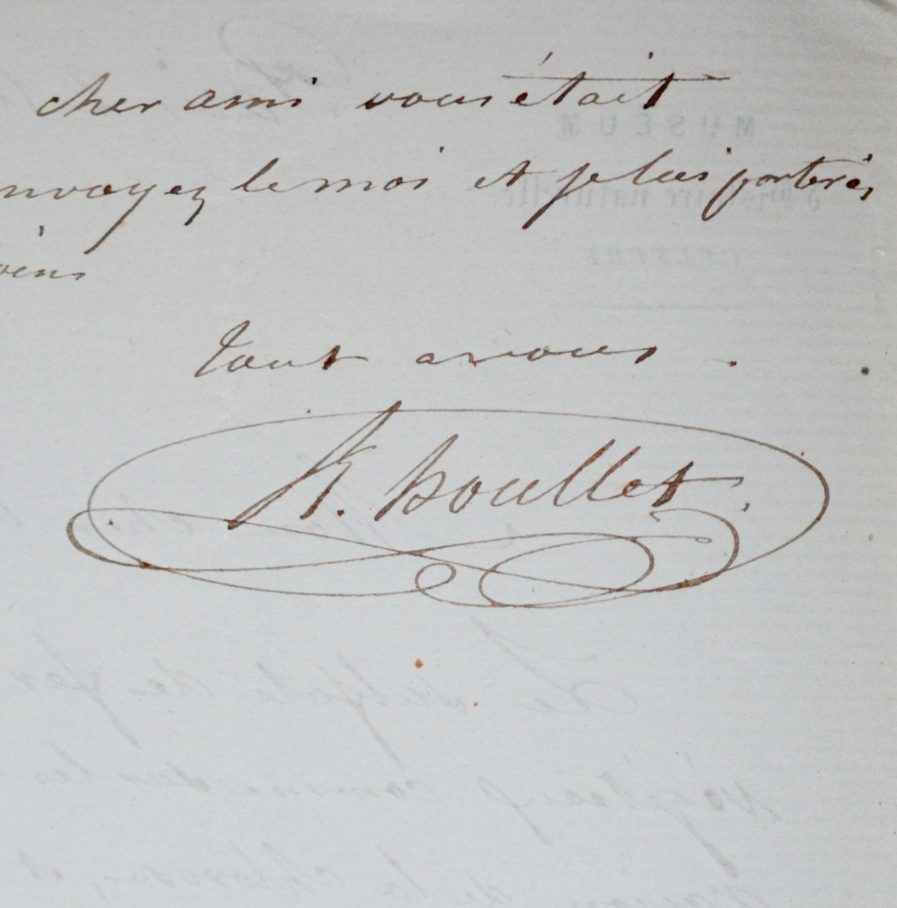 cher ami vous était
nvoyez le moi et je lui porterés
oins
tout a vous.
R. houllet.
MUSEUM
d'Histoire naturelle
CULTURE